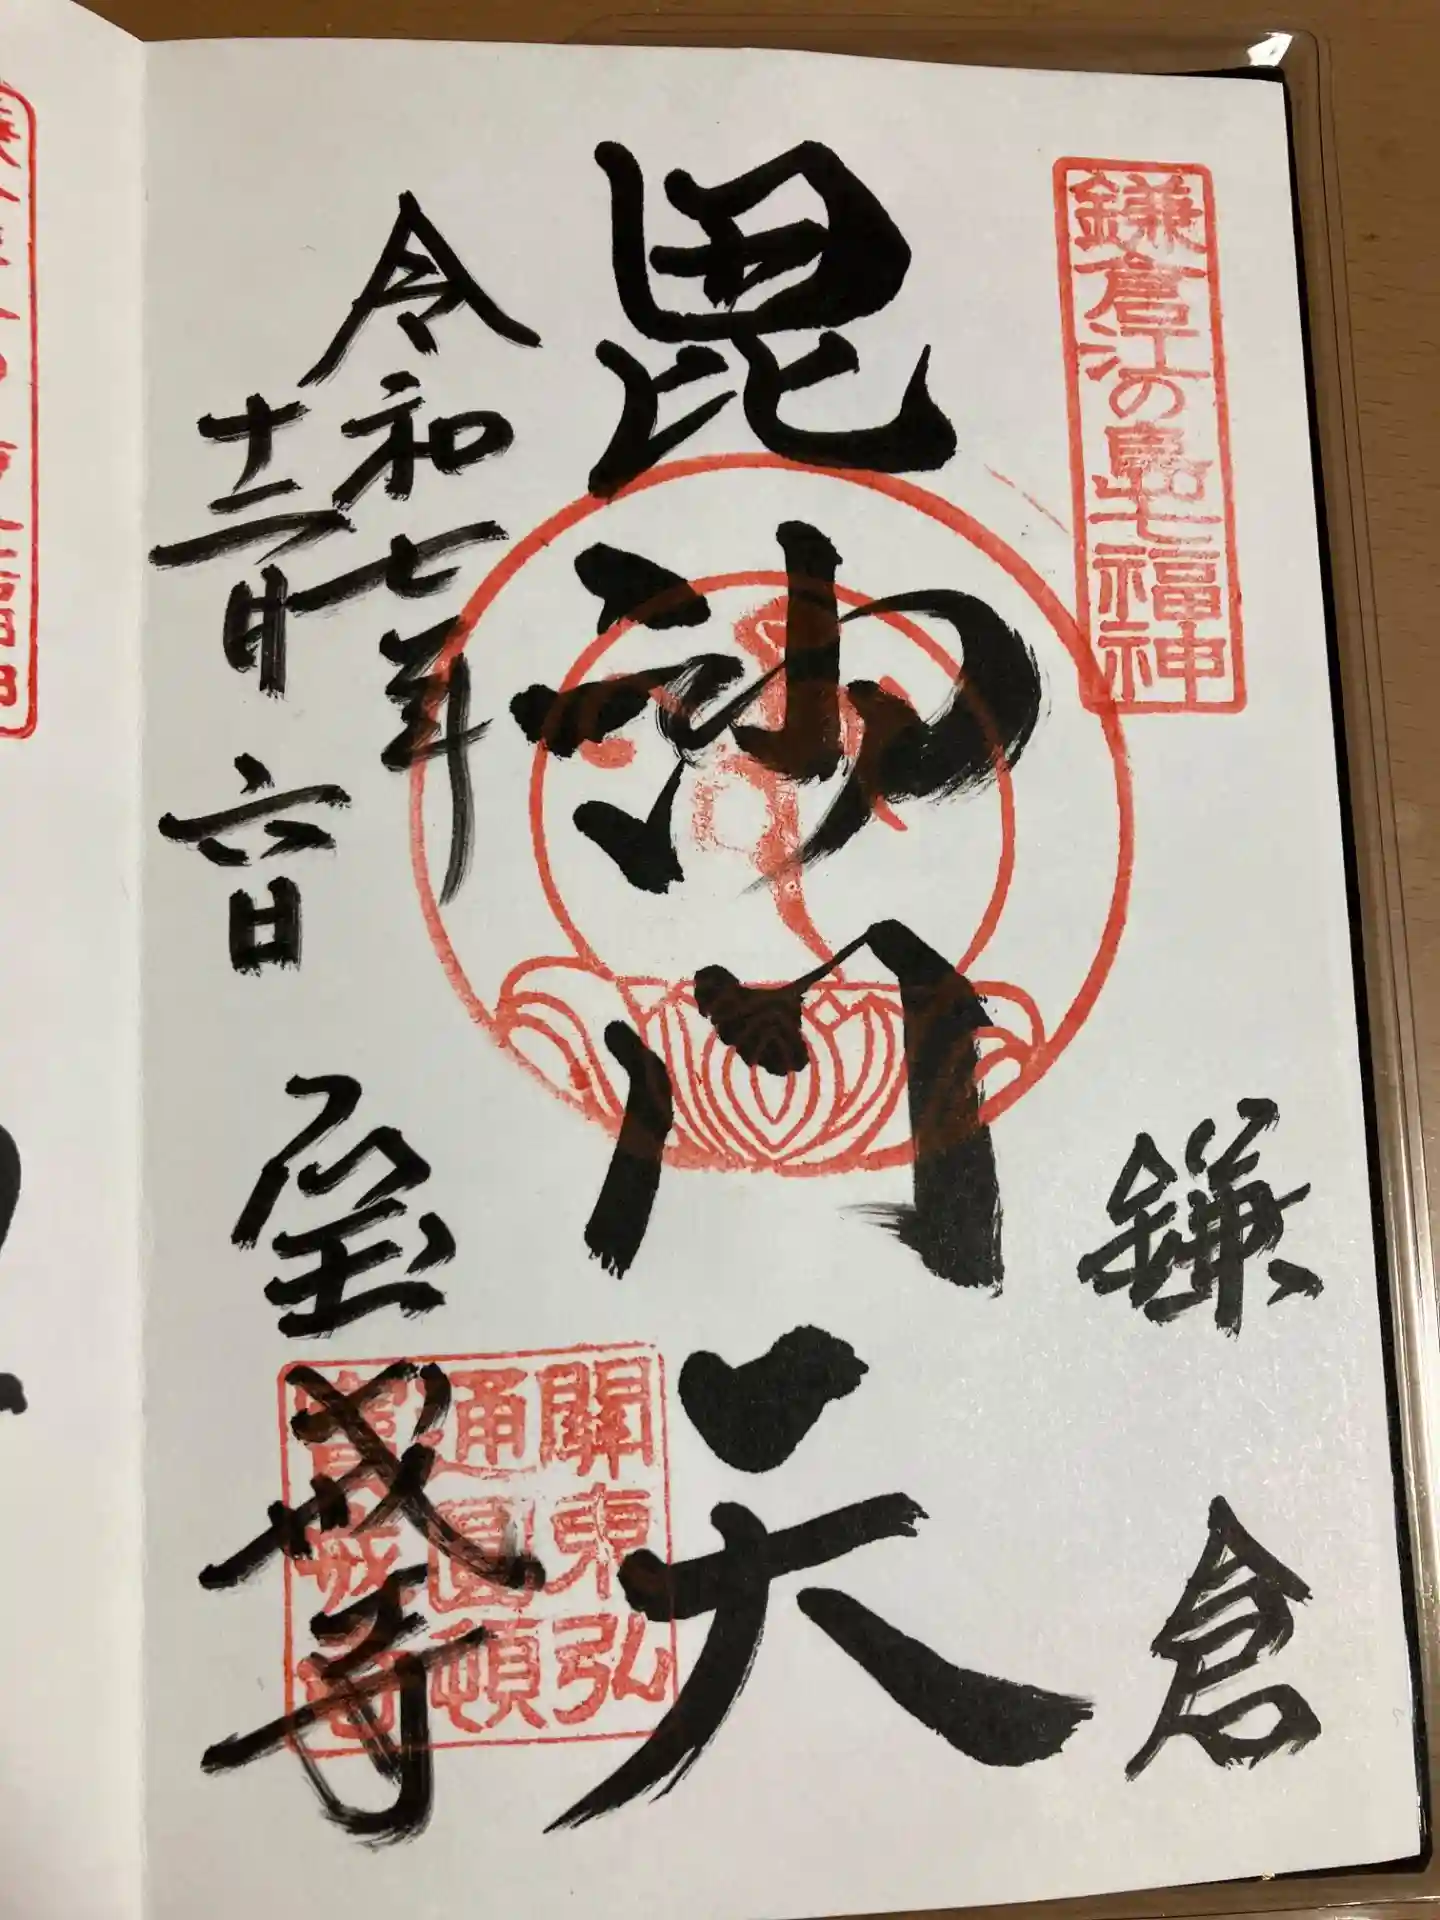 鎌倉江の島七福神
鎌倉
毘沙門天
關東弘
通圓頓
寶戒寺
令和七年
十二月六日
宝戒寺